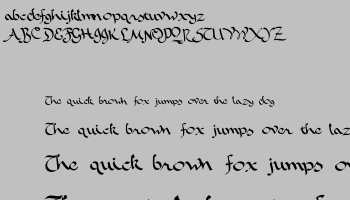 abcdefghijklmnopqrstuvwxyz
ABCDEFGHIJKLMNOPQRSTUVWXYZ
The quick brown fox jumps over the lazy dog
The quick brown fox jumps over the laz
The quick brown fox jumps o